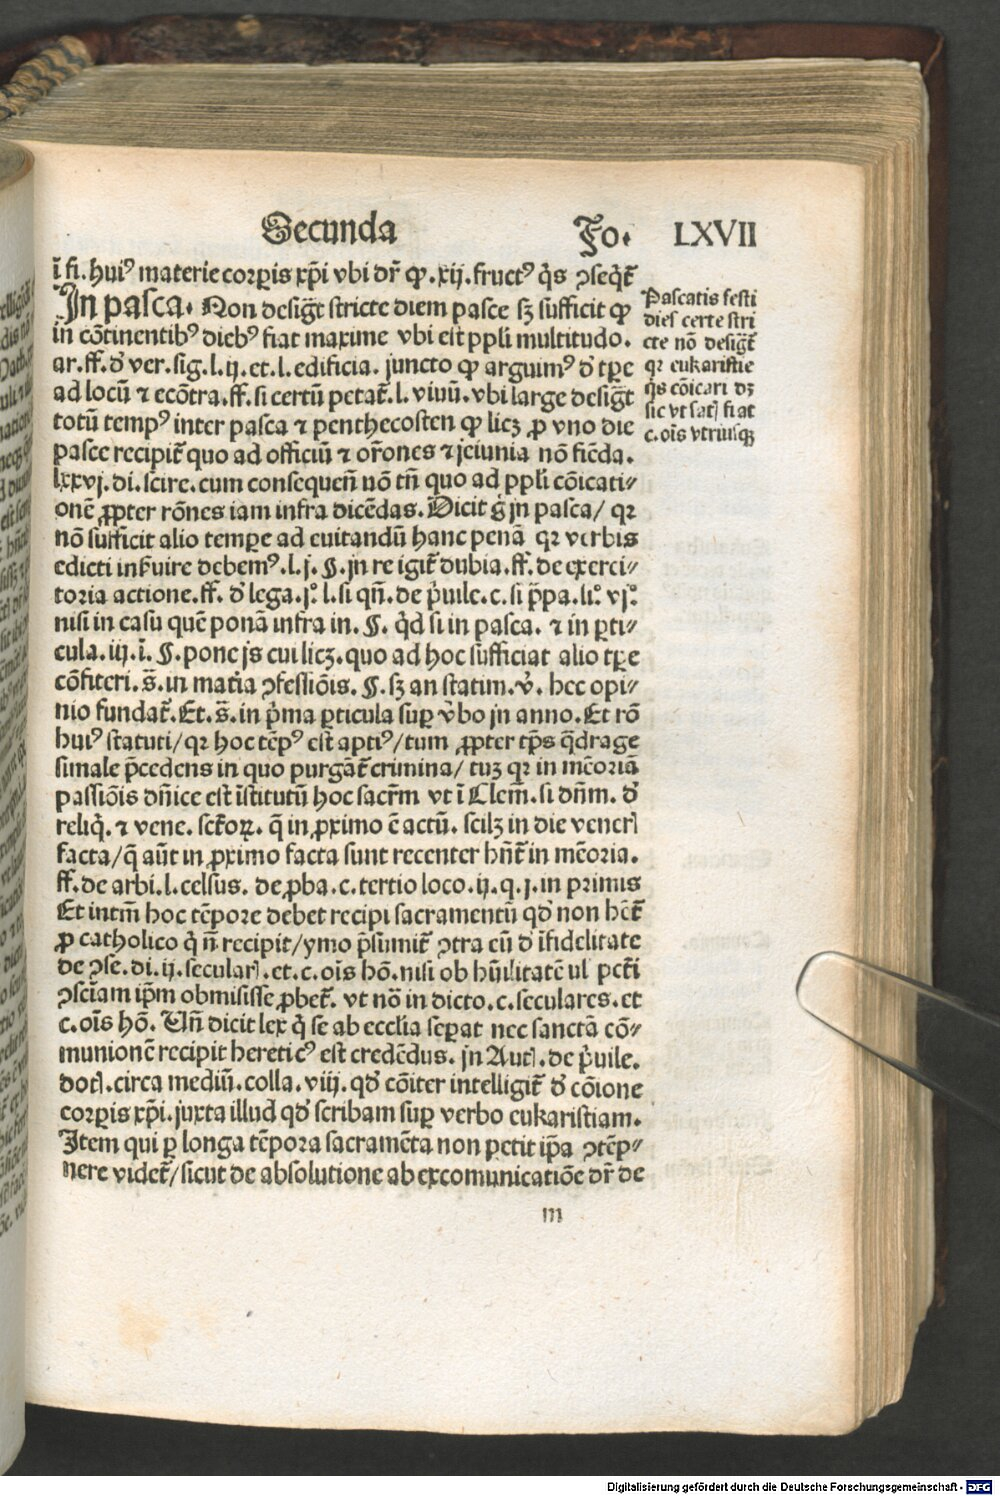 Secunda Fo. LXVII
ī fi. huiꝰ materie corꝑis xp̄i vbi dr̄ ꝙ .xij. fructꝰ q̇s ꝯseq̇t̄
In pasca. Non desigt̄ stricte diem pasce sꝫ sufficit ꝙ
in cōtinentibꝰ diebꝰ fiat maxime vbi est ppli multitudo.
ar. ff. đ ver. sig. l. ij. et. l. edificia. juncto ꝙ arguimꝰ đ tꝑe
ad locū ⁊ ecōtra. ff. si certū petat̄. l. vinū. vbi large desigt̄
totū tempꝰ inter pasca ⁊ penthecosten ꝙ licꝫ ꝓ vno die
pasce recipit̄ quo ad officiū ⁊ or̄ones ⁊ jeiunia nō fiēda.
lxxvj. di. scire. cum consequen̄ nō tn̄ quo ad ppli cōicati⸗
onē ꝓpter rōnes iam infra dicēdas. Dicit g̊ jn pasca/ qꝛ
nō sufficit alio tempe ad euitandū hanc penā qꝛ verbis
edicti inẜuire debemꝰ. l. j. §. jn re igit̄ dubia. ff. de exerci⸗
toria actione. ff. đ lega. j.º l. si qn̄. de p̓uile. c. si p̄pa. li.º vj.º
nisi in casu quē ponā infra in. §. q̇d si in pasca. ⁊ in ꝑti⸗
cula. iij. ī. §. pone js cui licꝫ. quo ad hoc sufficiat alio tꝑe
cōfiteri. s̄. in mat̓ia ꝯfessiōis. §. sꝫ an statim. v̓. hec opi⸗
nio fundat̄. Et. s̄. in p̓ma ꝑticula suꝑ v̓bo jn anno. Et rō
huiꝰ statuti/ qꝛ hoc tēpꝰ est aptiꝰ/ tum ꝓpter tp̄s q̄drage
simale p̄cedens in quo purgāt̄ crimina/ tuꝫ qꝛ in mēoriā
passiōis dn̄ice est īstitutū hoc sacr̄m vt ī Clem̄. si dn̄m. đ
reliq̇. ⁊ vene. sctōꝝ. q̄ in ꝓximo ē actū. scilꝫ in die veneri
facta/ q̄ aūt in ꝓximo facta sunt recenter hn̄t̄ in mēoria.
ff. de arbi. l. celsus. de ꝓba. c. tertio loco. ij. q. j. in primis
Et intm̄ hoc tēpore debet recipi sacramentū qđ non hēt̄
ꝓ catholico q̇ n̄ recipit/ ymo p̄sumit̄ ꝯtra eū đ īfidelitate
de ꝯse. di. ij. seculari. et. c. oīs hō. nisi ob hūilitatē ul pctī
ꝯsciam ip̄m obmisisse ꝓbet̄. vt nō in dicto. c. seculares. et
c. oīs hō. Vn̄ dicit lex q̇ se ab ecclia seꝑat nec sanctā cō⸗
munionē recipit hereticꝰ est credēdus. jn Auti. de p̓uile.
doti. circa mediū. colla. viij. qđ cōiter intelligit̄ đ cōione
corꝑis xp̄i. juxta illud qđ scribam suꝑ verbo eukaristiam.
Item qui ꝑ longa tēpora sacramēta non petit ip̄a ꝯtēp⸗
nere videt̄/ sicut de absolutione ab excomunicatiōe dr̄ de
m
Pascatis festi
dies certe stri
cte nō desigt̄
qꝛ eukaristie
q̇s cōicari dꝫ
sic vt sati fiat
c. oīs vtriusqꝫ
Digitalisierung gefördert durch die Deutsche Forschungsgemeinschaft - DFG